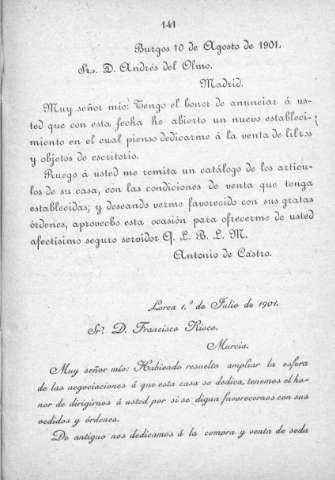 141
Burgos 10 de Agosto de 1901.
Sr. D. Andrés del Olmo.
Madrid.
Muy señor mío: Tengo el honor de anunciar á us-
ted que con esta fecha he abierto un nuevo estableci-
miento en el cual pienso dedicarme á la venta de libros
y objetos de escritorio.
Ruego á usted me remita un catálogo de los artícu-
los de su casa, con las condiciones de venta que tenga
establecidas; y deseando verme favorecido con sus gratas
órdenes, aprovecho esta ocasión para ofrecerme de usted
afectísimo seguro servidor Q. L. B. L. M.
Antonio de Castro.
Lorca 1.º de Julio de 1901.
Sr. D. Francisco Risco.
Murcia.
Muy señor mío: Habiendo resuelto ampliar la esfera
de las negociaciones á que esta casa se dedica, tenemos el ho-
nor de dirigirnos á usted por si se digna favorecernos con sus
pedidos y órdenes.
De antiguo nos dedicamos á la compra y venta de seda